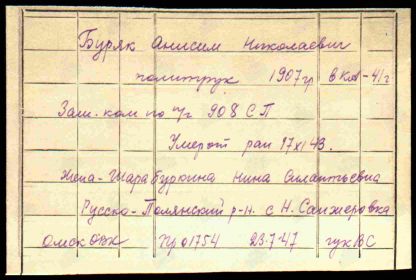 Буряк Анисим Николаевич
политрук 1907 гр в КА-41г
Зам. ком по п/ч 908 СП
Умер от ран 17 XI 43.
Жена - Шарабуркина Нина
Русско-Полянский р-н. с Н. Санжеровка
Омск ОВК пр 01754 23.7.47 гук ВС